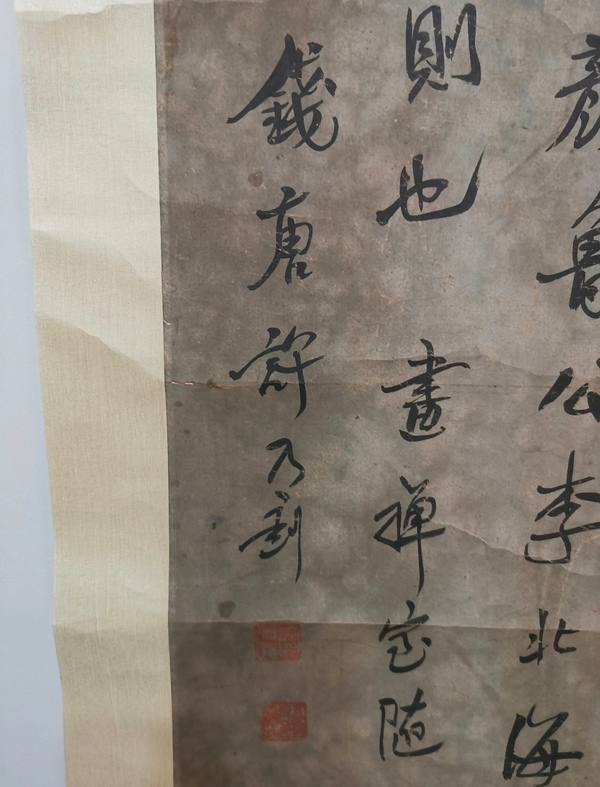 顏魯公李北海
則也畫禪室隨
錢唐許乃釗